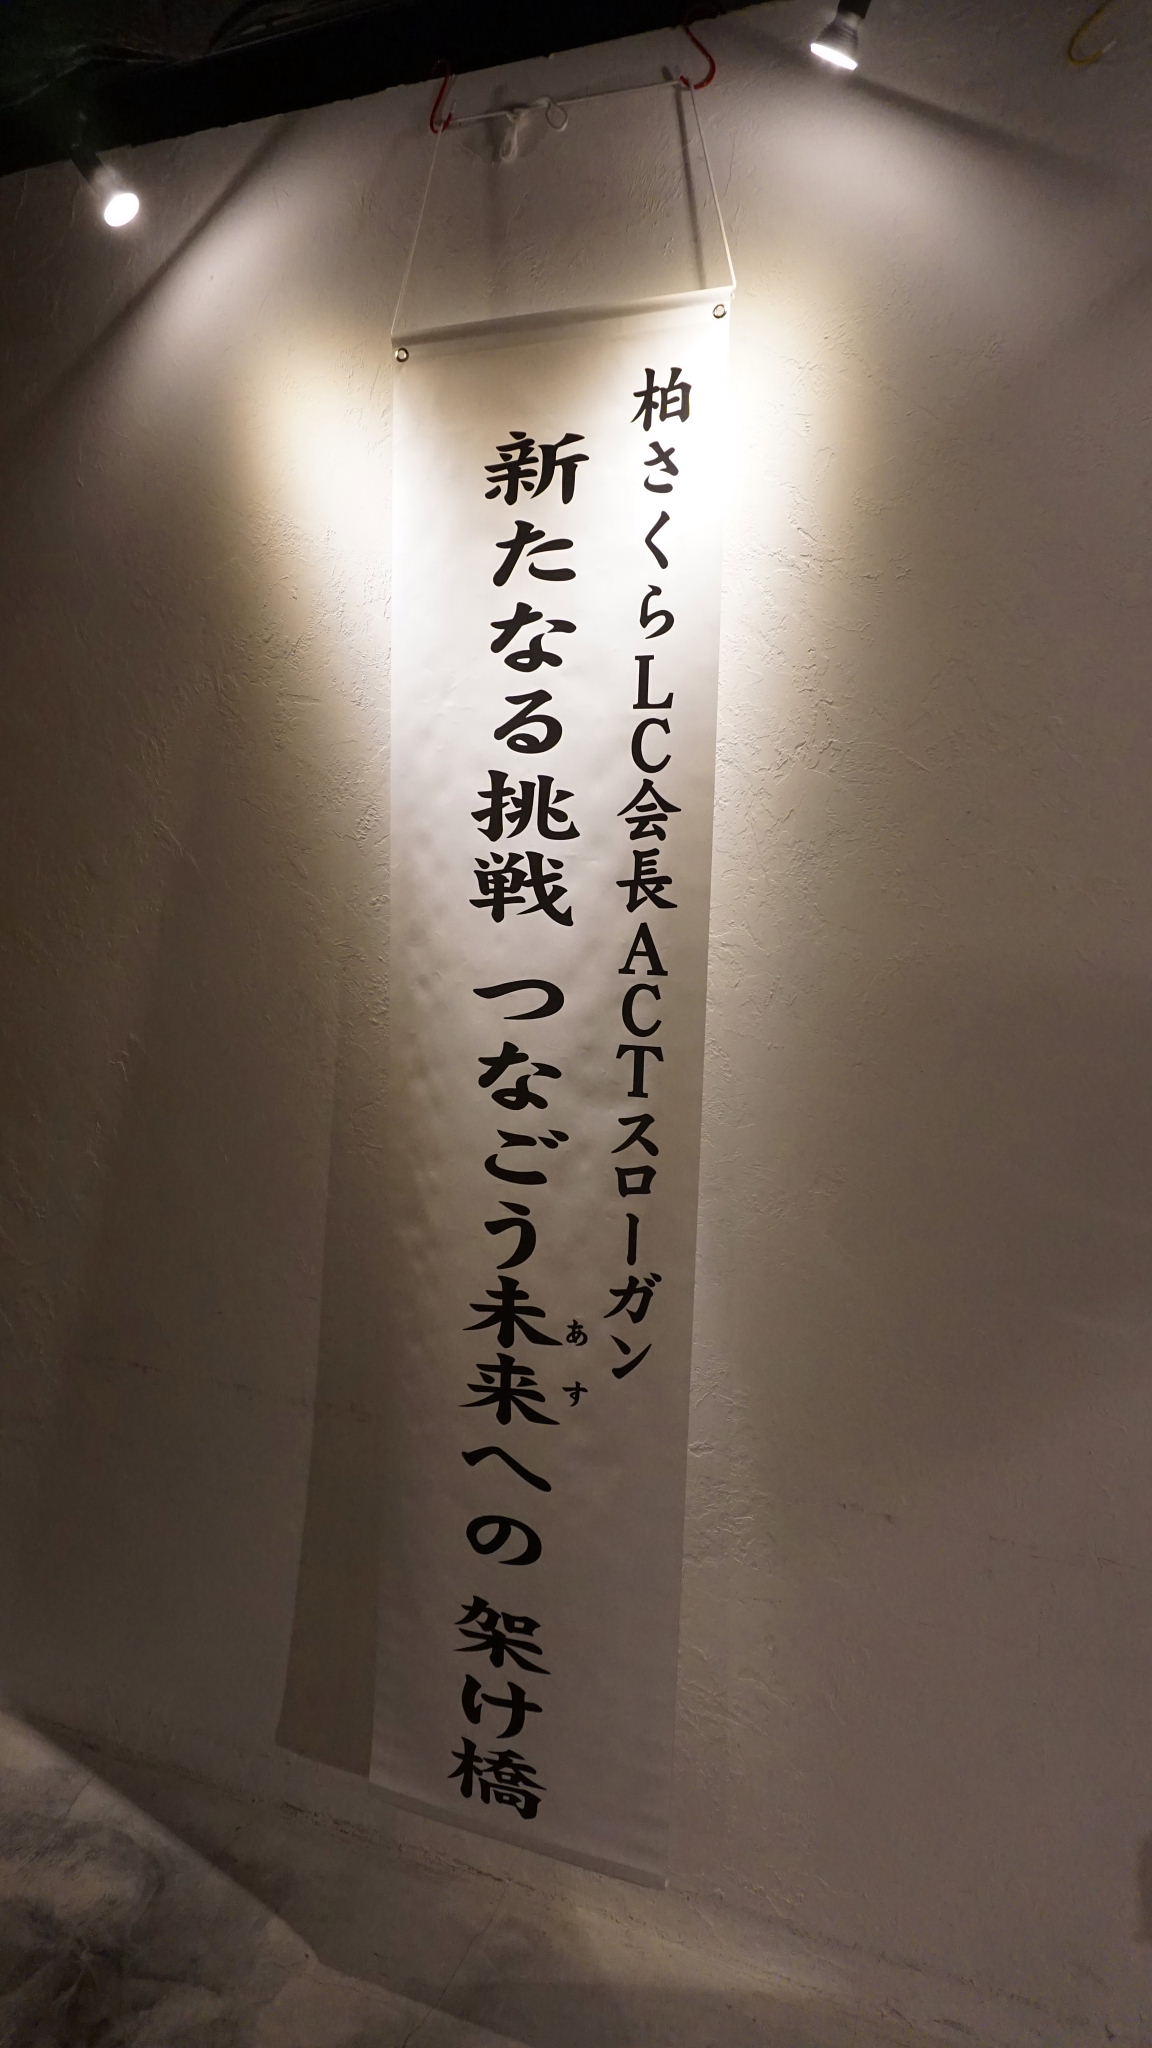 柏さくらLC会長ACTスローガン
新たなる挑戦 つなごう未来への 架け橋
あす